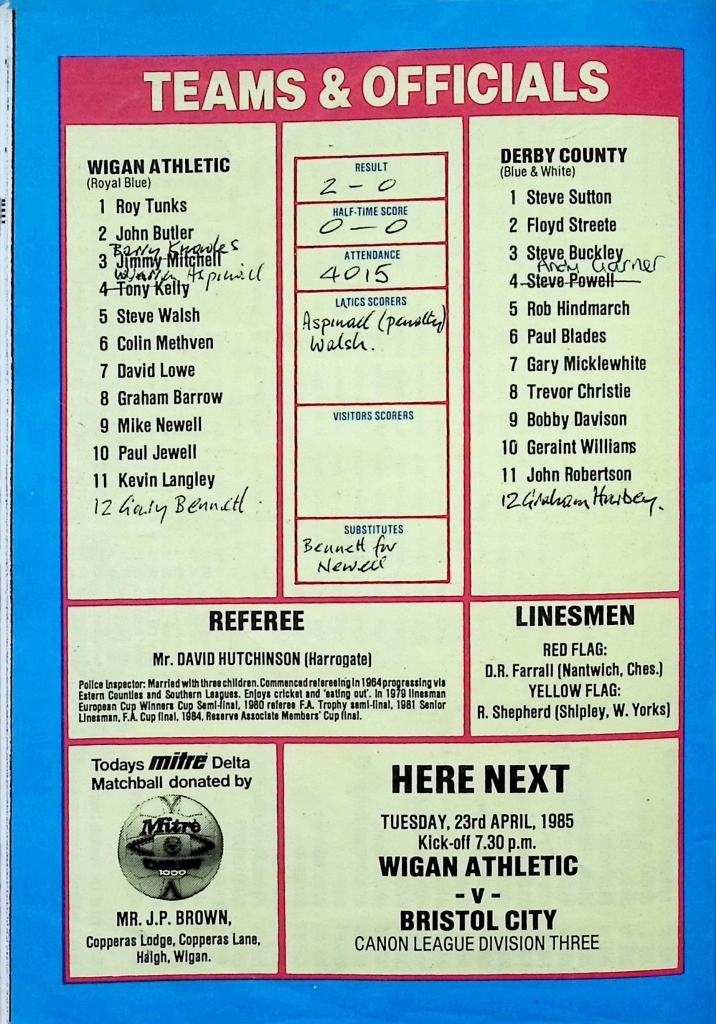 TEAMS & OFFICIALS
WIGAN ATHLETIC
(Royal Blue)
1 Roy Tunks
2 John Butler
Barry Knowles
3 Jimmy Mitchell
Warren Aspinall
4 Tony Kelly
5 Steve Walsh
6 Colin Methven
7 David Lowe
8 Graham Barrow
9 Mike Newell
10 Paul Jewell
11 Kevin Langley
12 Gary Bennett
RESULT
2 - 0
HALF-TIME SCORE
0 - 0
ATTENDANCE
4015
LATICS SCORERS
Aspinall (penalty)
Walsh.
VISITORS SCORERS
SUBSTITUTES
Bennett for
Newell
DERBY COUNTY
(Blue & White)
1 Steve Sutton
2 Floyd Streete
3 Steve Buckley
Andy Garner
4 Steve Powell
5 Rob Hindmarch
6 Paul Blades
7 Gary Micklewhite
8 Trevor Christie
9 Bobby Davison
10 Geraint Williams
11 John Robertson
12 Graham Harbey.
REFEREE
Mr. DAVID HUTCHINSON (Harrogate)
Police Inspector: Married with three children. Commenced refereeing in 1964 progressing via
Estern Counties and Southern Leagues. Enjoys cricket and 'eating out'. In 1979 linesman
European Cup Winners Cup Semi-final, 1980 referee F.A. Trophy semi-final, 1981 Senior
Linesman, F.A. Cup final, 1984, Reserve Associate Members' Cup final.
LINESMEN
RED FLAG:
D.R. Farrall (Nantwich, Ches.)
YELLOW FLAG:
R. Shepherd (Shipley, W. Yorks)
Todays mitre Delta
Matchball donated by
Mitre
1000
MR. J.P. BROWN,
Copperas Lodge, Copperas Lane,
Haigh, Wigan.
HERE NEXT
TUESDAY, 23rd APRIL, 1985
Kick-off 7.30 p.m.
WIGAN ATHLETIC
- v -
BRISTOL CITY
CANON LEAGUE DIVISION THREE